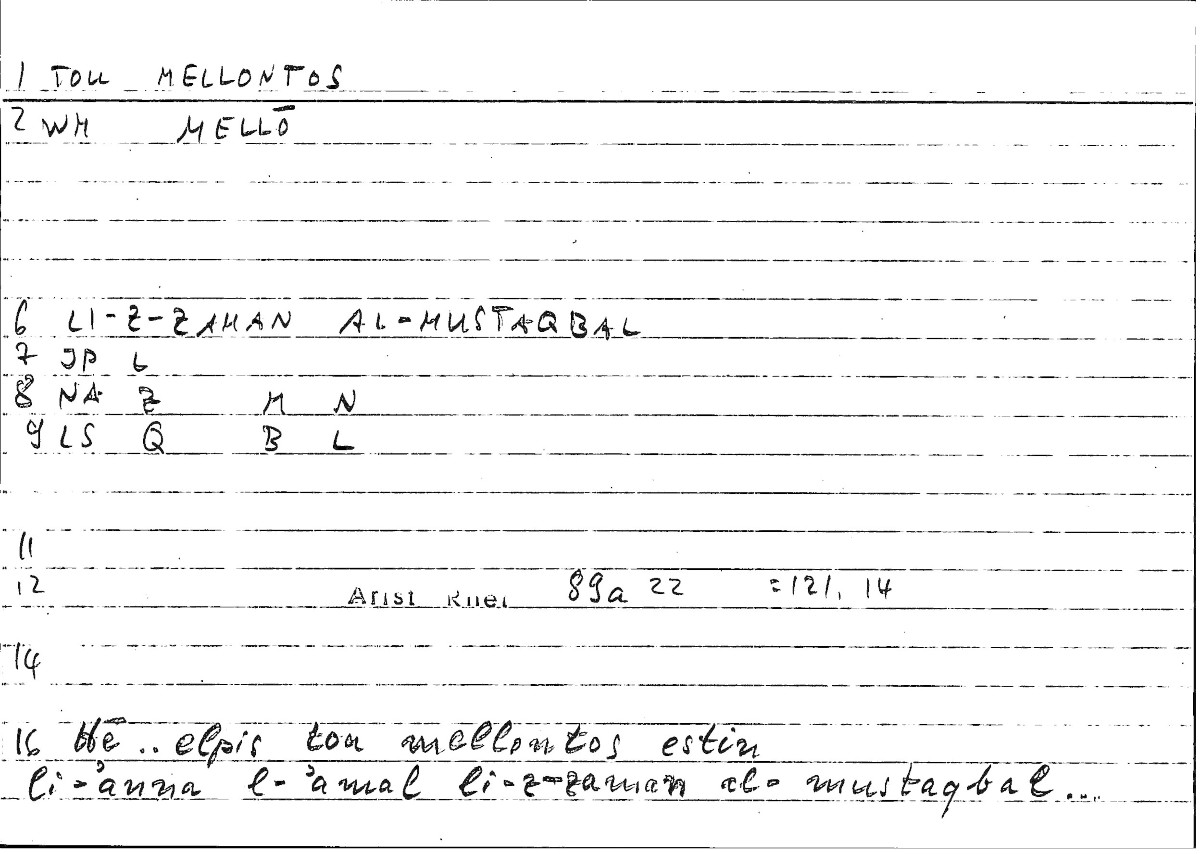 1 TOU MELLONTOS
2 WM MELLŌ
6 LI-Z-ZAMAN AL-MUSTAQBAL
7 JP L
8 NA Z M N
9 LS Q B L
11
12 Arist Rhet 89a 22 =121, 14
14
16 Hē .. elpis tou mellontos estin
li-ʾanna l-ʾamal li-z-zaman al-mustaqbal ...